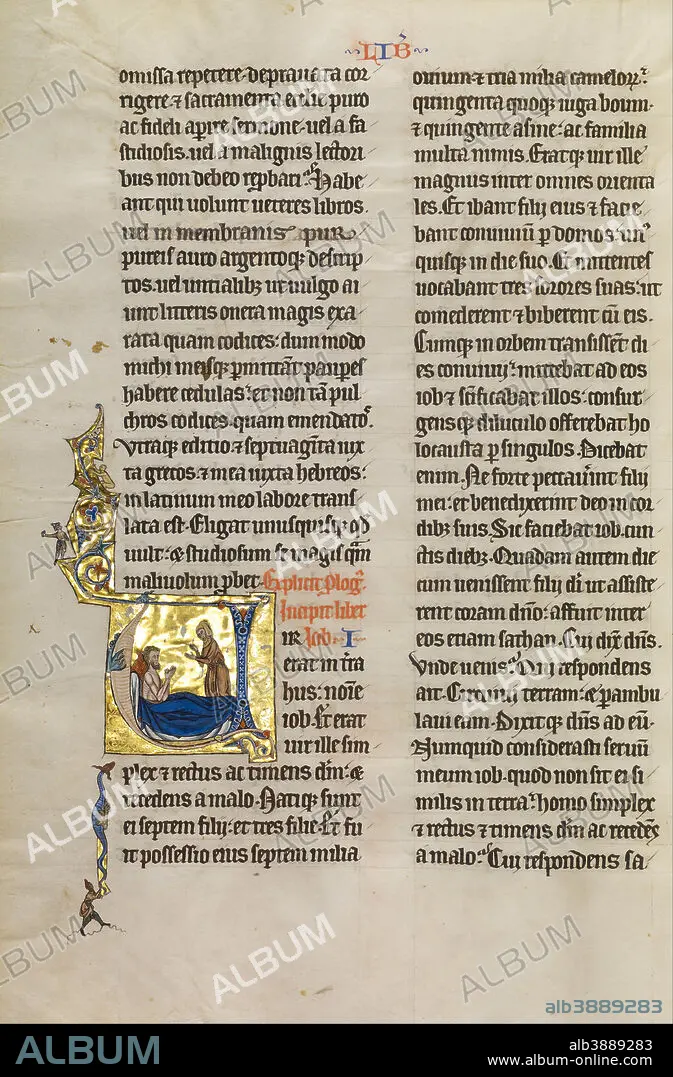 LIB
omissa repetere. deprauata cor
rigere. ⁊ sacramenta ecclie puro
ac fideli apire sermone. uel a fa
stidiosis. uel a malignis lectori
bus non debeo repbari. Habe
ant qui uolunt ueteres libros.
uel in membranis pur
pureis auro argentoq; descrip
tos. uel uncialibz ut uulgo ai
unt litteris onera magis exa
rata quam codices: dum modo
michi meisq; pmittant paupes
habere cedulas: et non tam pul
chros codices quam emendatos.
Vtraq; editio ⁊ septuaginta iux
ta grecos. ⁊ mea iuxta hebreos:
in latinum meo labore trans
lata est. Eligat unusquisq; qd
uult: ⁊ studiosum se magis qm
maliuolum pbet. Explicit plog
Incipit liber
Iob. I
UIR
erat in tra
hus: noie
iob. Et erat
uir ille sim
plex ⁊ rectus ac timens dm: ⁊
recedens a malo. Natiq; sunt
ei septem filij: et tres filie. Et fu
it possessio eius septem milia
ouium. ⁊ tria milia camelorum:
quingenta quoq; iuga boum.
⁊ quingente asine: ac familia
multa nimis. Eratq; uir ille
magnus inter omnes orienta
les. Et ibant filij eius ⁊ facie
bant conuiuium p domos: unus
quisq; in die suo. Et mittentes
uocabant tres sorores suas: ut
comederent ⁊ biberent cu eis.
Cumq; in orbem transissent di
es conuiuij: mittebat ad eos
iob ⁊ scificabat illos: consur
gensq; diluculo offerebat ho
locausta p singulos. Dicebat
enim. Ne forte peccauint filij
mei: et benedixerint deo in cor
dibz suis. Sic faciebat iob. cun
ctis diebz. Quadam autem die
cum uenissent filij di ut assiste
rent coram dno: affuit inter
eos etiam sathan. Cui dix dns.
Vnde uenis. Qui respondens
ait. Circuiui terram: ⁊ pambu
laui eam. Dixitq; dns ad eu.
Nunquid considerasti seruu
meum iob. quod non sit ei si
milis in terra: homo simplex
⁊ rectus ⁊ timens dm ac recedens
a malo: Cui respondens sa
alb3889283
ALBUM
alb3889283
www.album-online.com